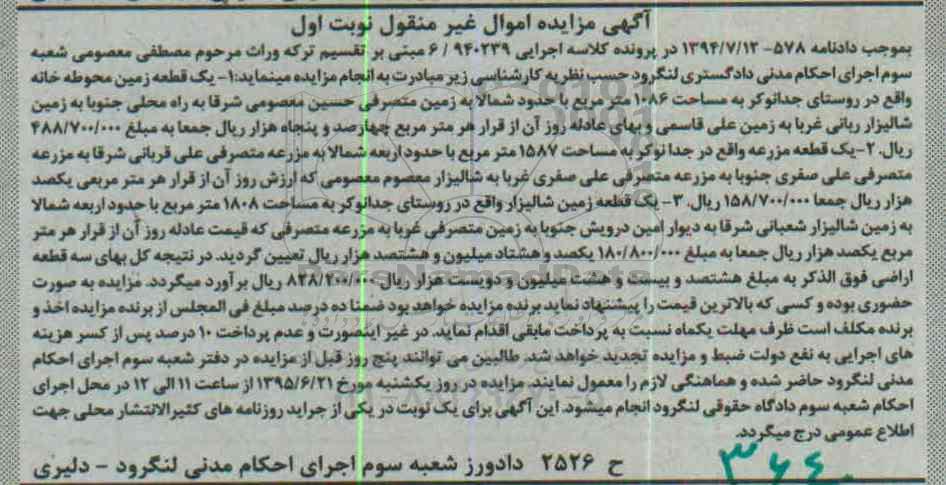 آگهی مزایده اموال غیر منقول نوبت اول
بموجب دادنامه ۵۷۸- ۱۳۹۴/۷/۱۳ در پرونده کلاسه اجرایی ۹۴۰۲۳۹ / ۶ مبتنی بر تقسیم ترکه وراث مرحوم مصطفی معصومی شعبه
سوم اجرای احکام مدنی دادگستری لنگرود حسب نظریه کارشناسی زیر مبادرت به انجام مزایده مینماید:۱- یک قطعه زمین محوطه خانه
واقع در روستای جدانوکر به مساحت ۱۰۸۶ متر مربع با حدود شمالا به زمین متصرفی حسین معصومی شرقا به راه محلی جنوبا به زمین
شالیزار ربانی غربا به زمین علی قاسمی و بهای عادله روز آن از قرار هر متر مربع چهارصد و پنجاه هزار ریال جمعا به مبلغ ۴۸۸/۷۰۰/۰۰۰
ریال. ۲-یک قطعه مزرعه واقع در جدا نوکر به مساحت ۱۵۸۷ متر مربع با حدود اربعه شمالا به مزرعه متصرفی علی قربانی شرقا به مزرعه
متصرفی علی صفری جنوبا به مزرعه متصرفی علی صفری غربا به شالیزار معصوم معصومی که ارزش روز آن از قرار هر متر مربعی یکصد
هزار ریال جمعا ۱۵۸/۷۰۰/۰۰۰ ریال. ۳- یک قطعه زمین شالیزار واقع در روستای جدانوکر به مساحت ۱۸۰۸ متر مربع با حدود اربعه شمالا
به زمین شالیزار شعبانی شرقا به دیوار امین درویش جنوبا به زمین متصرفی غربا به مزرعه متصرفی که قیمت عادله روز آن از قرار هر متر
مربع یکصد هزار ریال جمعا به مبلغ ۱۸۰/۸۰۰/۰۰۰ یکصد و هشتاد میلیون و هشتصد هزار ریال تعیین گردید. در نتیجه کل بهای سه قطعه
اراضی فوق الذکر به مبلغ هشتصد و بیست و هشت میلیون و دویست هزار ریال ۸۲۸/۲۰۰/۰۰۰ ریال برآورد میگردد. مزایده به صورت
حضوری بوده و کسی که بالاترین قیمت را پیشنهاد نماید برنده مزایده خواهد بود ضمنا ده درصد مبلغ فی المجلس از برنده مزایده اخذ و
برنده مکلف است ظرف مهلت یکماه نسبت به پرداخت مابقی اقدام نماید. در غیر اینصورت و عدم پرداخت ۱۰ درصد پس از کسر هزینه
های اجرایی به نفع دولت ضبط و مزایده تجدید خواهد شد. طالبین می توانند پنج روز قبل از مزایده در دفتر شعبه سوم اجرای احکام
مدنی لنگرود حاضر شده و هماهنگی لازم را معمول نمایند. مزایده در روز یکشنبه مورخ ۱۳۹۵/۶/۲۱ از ساعت ۱۱ الی ۱۲ در محل اجرای
احکام شعبه سوم دادگاه حقوقی لنگرود انجام میشود. این آگهی برای یک نوبت در یکی از جراید روزنامه های کثیرالانتشار محلی جهت
اطلاع عمومی درج میگردد.
ح ۲۵۲۶ دادورز شعبه سوم اجرای احکام مدنی لنگرود - دلیری
ParsNamadData